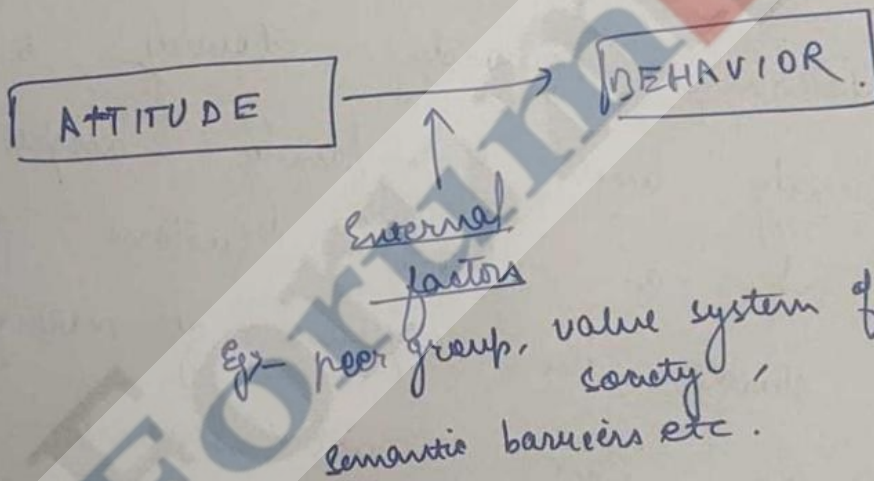 ATTITUDE
BEHAVIOR.
External
factors
Eg:- peer group, value system of
society,
semantic barriers etc.
Forum